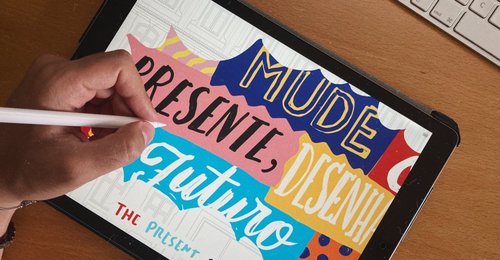 MUDE
PRESENTE,
DESENHA
Futuro
THE PRESENT